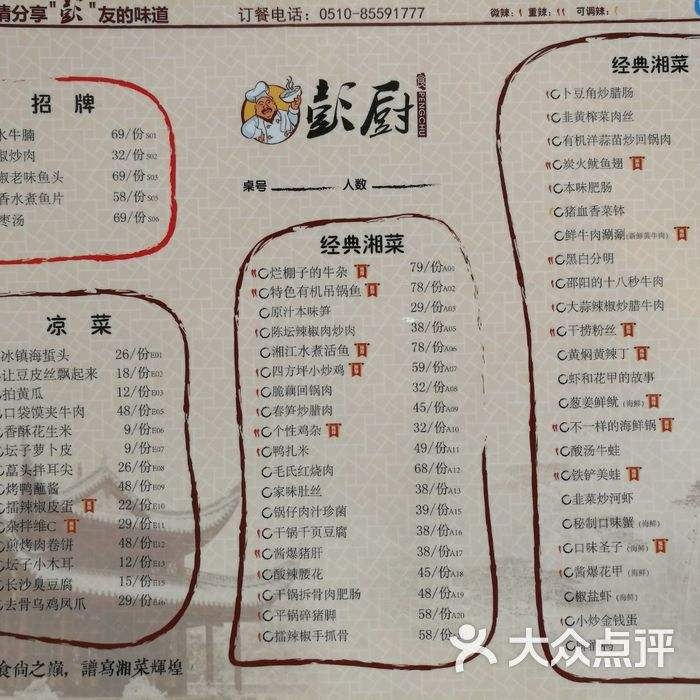 情分享"彭"友的味道
订餐电话：0510-85591777
微辣： 重辣： 可调辣：
招 牌
水牛腩 69/份S01
椒炒肉 32/份S02
椒老味鱼头 69/份S03
香水煮鱼片 58/份S05
枣汤 69/份S06
凉 菜
冰镇海蜇头 26/份E01
让豆皮丝飘起来 18/份E02
拍黄瓜 12/份E03
口袋馍夹牛肉 48/份E05
香酥花生米 9/份E06
坛子萝卜皮 9/份E07
藠头拌耳尖 26/份E08
烤鸭蘸酱 48/份E09
擂辣椒皮蛋 22/份E10
杂拌维C 29/份E11
煎烤肉卷饼 48/份E12
坛子小木耳 12/份E13
长沙臭豆腐 15/份E15
去骨乌鸡凤爪 29/份E16
食尚之巅，譜寫湘菜輝煌
彭厨
PENGCHU
桌号 人数
经典湘菜
烂棚子的牛杂 79/份A01
特色有机吊锅鱼 78/份A02
原汁本味笋 29/份A03
陈坛辣椒肉炒肉 38/份A05
湘江水煮活鱼 78/份A06
四方坪小炒鸡 59/份A07
脆藕回锅肉 32/份A08
春笋炒腊肉 45/份A09
个性鸡杂 32/份A10
鸭扎米 49/份A11
毛氏红烧肉 68/份A12
家味肚丝 38/份A13
锅仔肉汁珍菌 39/份A15
干锅千页豆腐 38/份A16
酱爆猪肝 38/份A17
酸辣腰花 45/份A18
干锅拆骨肉肥肠 48/份A19
平锅碎猪脚 58/份A20
擂辣椒手抓骨 58/份
经典湘菜
卜豆角炒腊肠
韭黄榨菜肉丝
有机洋蒜苗炒回锅肉
炭火鱿鱼翅
本味肥肠
猪血香菜钵
鲜牛肉涮涮(新鲜黄牛肉)
黑白分明
邵阳的十八秒牛肉
大蒜辣椒炒腊牛肉
干捞粉丝
黄焖黄辣丁
虾和花甲的故事
葱姜鲜鱿(海鲜)
不一样的海鲜锅
酸汤牛蛙
铁铲美蛙
韭菜炒河虾
秘制口味蟹(海鲜)
口味圣子(海鲜)
酱爆花甲(海鲜)
椒盐虾(海鲜)
小炒金钱蛋
大众点评